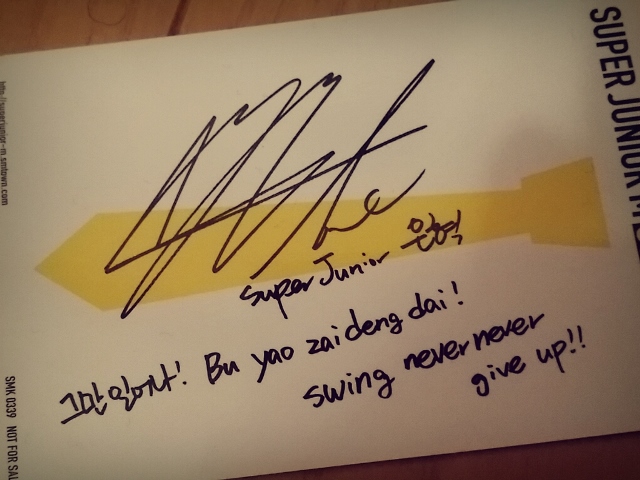 SUPER JUNIOR M
http://superjunior-m.smtown.com
Super Junior 은혁
그만 일어나! Bu yao zai deng dai!
swing never never
give up!!
SMK 0339 NOT FOR SAL